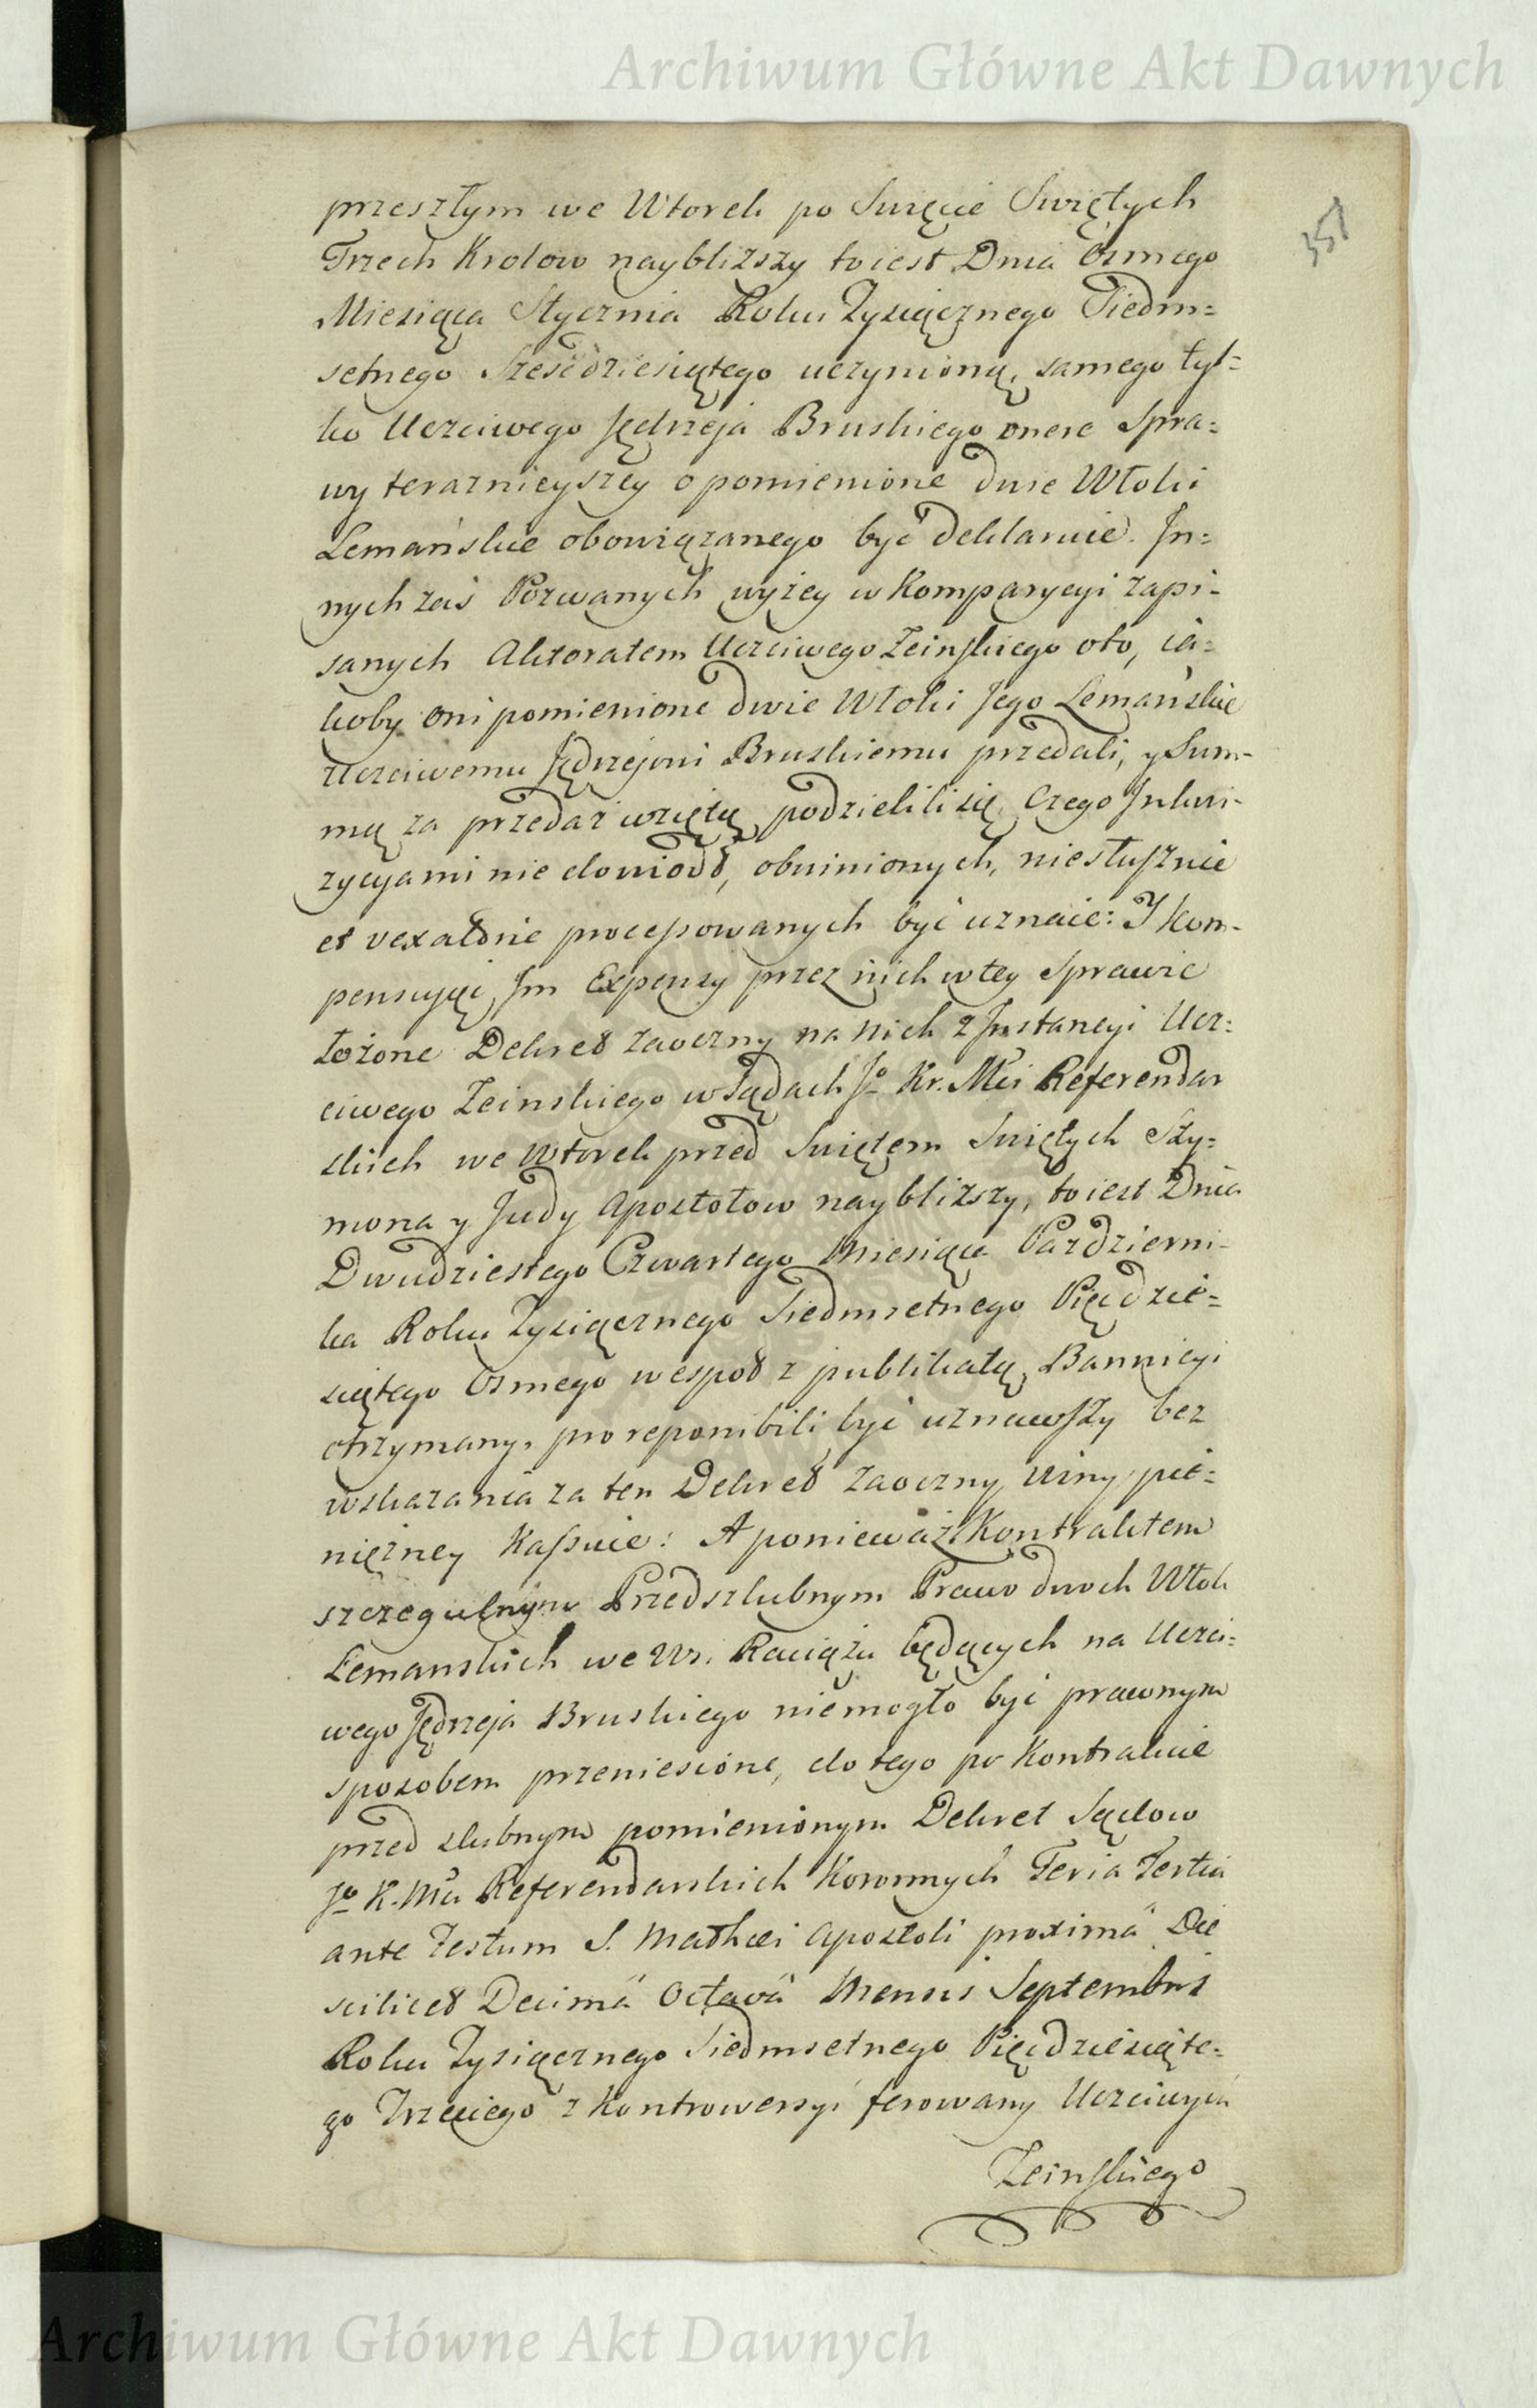 Archiwum Główne Akt Dawnych
351
przeszłym we Wtorek po Swięcie Swiętych
Trzech Krolow naybliższy to iest Dnia Osmego
Miesiąca Stycznia Roku Tysiącznego Siedm=
setnego Sześćdziesiątego uczynioną, samego tyl=
ko Uczciwego Jędrzeja Bruskiego onere Spra=
wy teraznieyszey o pomienione dwie Włoki
Lemańskie obowiązanego być deklaruie. In=
nych zaś Pozwanych wyżey w Komparycyi zapi-
sanych Aktoratem Uczciwego Zeinskiego oto, ia=
koby oni pomienione dwie Włoki Jego Lemańskie
Uczciwemu Jędrzejowi Bruskiemu przedali, y Sum-
mą za przedaż wziętą podzielili się, Czego Inkwi-
zycyami nie dowiodł, obwinionych, niesłusznie
et vexatdnie processowanych być uznaie: I kom-
pensuiąc Im Expensy przez nich w tey Sprawie
łożone Dekret zaoczny na nich z Instancyi Ucz=
ciwego Zeinskiego w Sądach Jo Kr. Mci Referendar
skich we Wtorek przed Swiętem Swiętych Szy=
mona y Judy Apostołow naybliższy, to iest Dnia
Dwudziestego Czwartego Miesiąca Pazdzierni-
ka Roku Tysiącznego Siedmsetnego Pięćdzie=
siętego Osmego wespoł z publikatą Bannicyi
otrzymany, pro reponibili być uznawszy bez
wskazania za ten Dekret zaoczny winy pie=
niężney Kassuie: A ponieważ Kontraktem
szczegulnym Przedszlubnym Prawo dwoch Włok
Lemanskich we Wsi Raciążu będących na Uczci=
wego Jędrzeja Bruskiego niemogło być prawnym
sposobem przeniesione, do tego po Kontrakcie
przed slubnym pomienionym Dekret Sądow
Jo K. Mci Referendarskich Koronnych Feria Tertia
ante Festum S. Mathæi Apostoli proximâ Die
scilicet Decimâ Octavâ Mensis Septembris
Roku Tysiącznego Siedmsetnego Pięćdziesiąte=
go Trzeciego z Kontrowersyi ferowany Uczciwych
Zeinskiego
Archiwum Główne Akt Dawnych